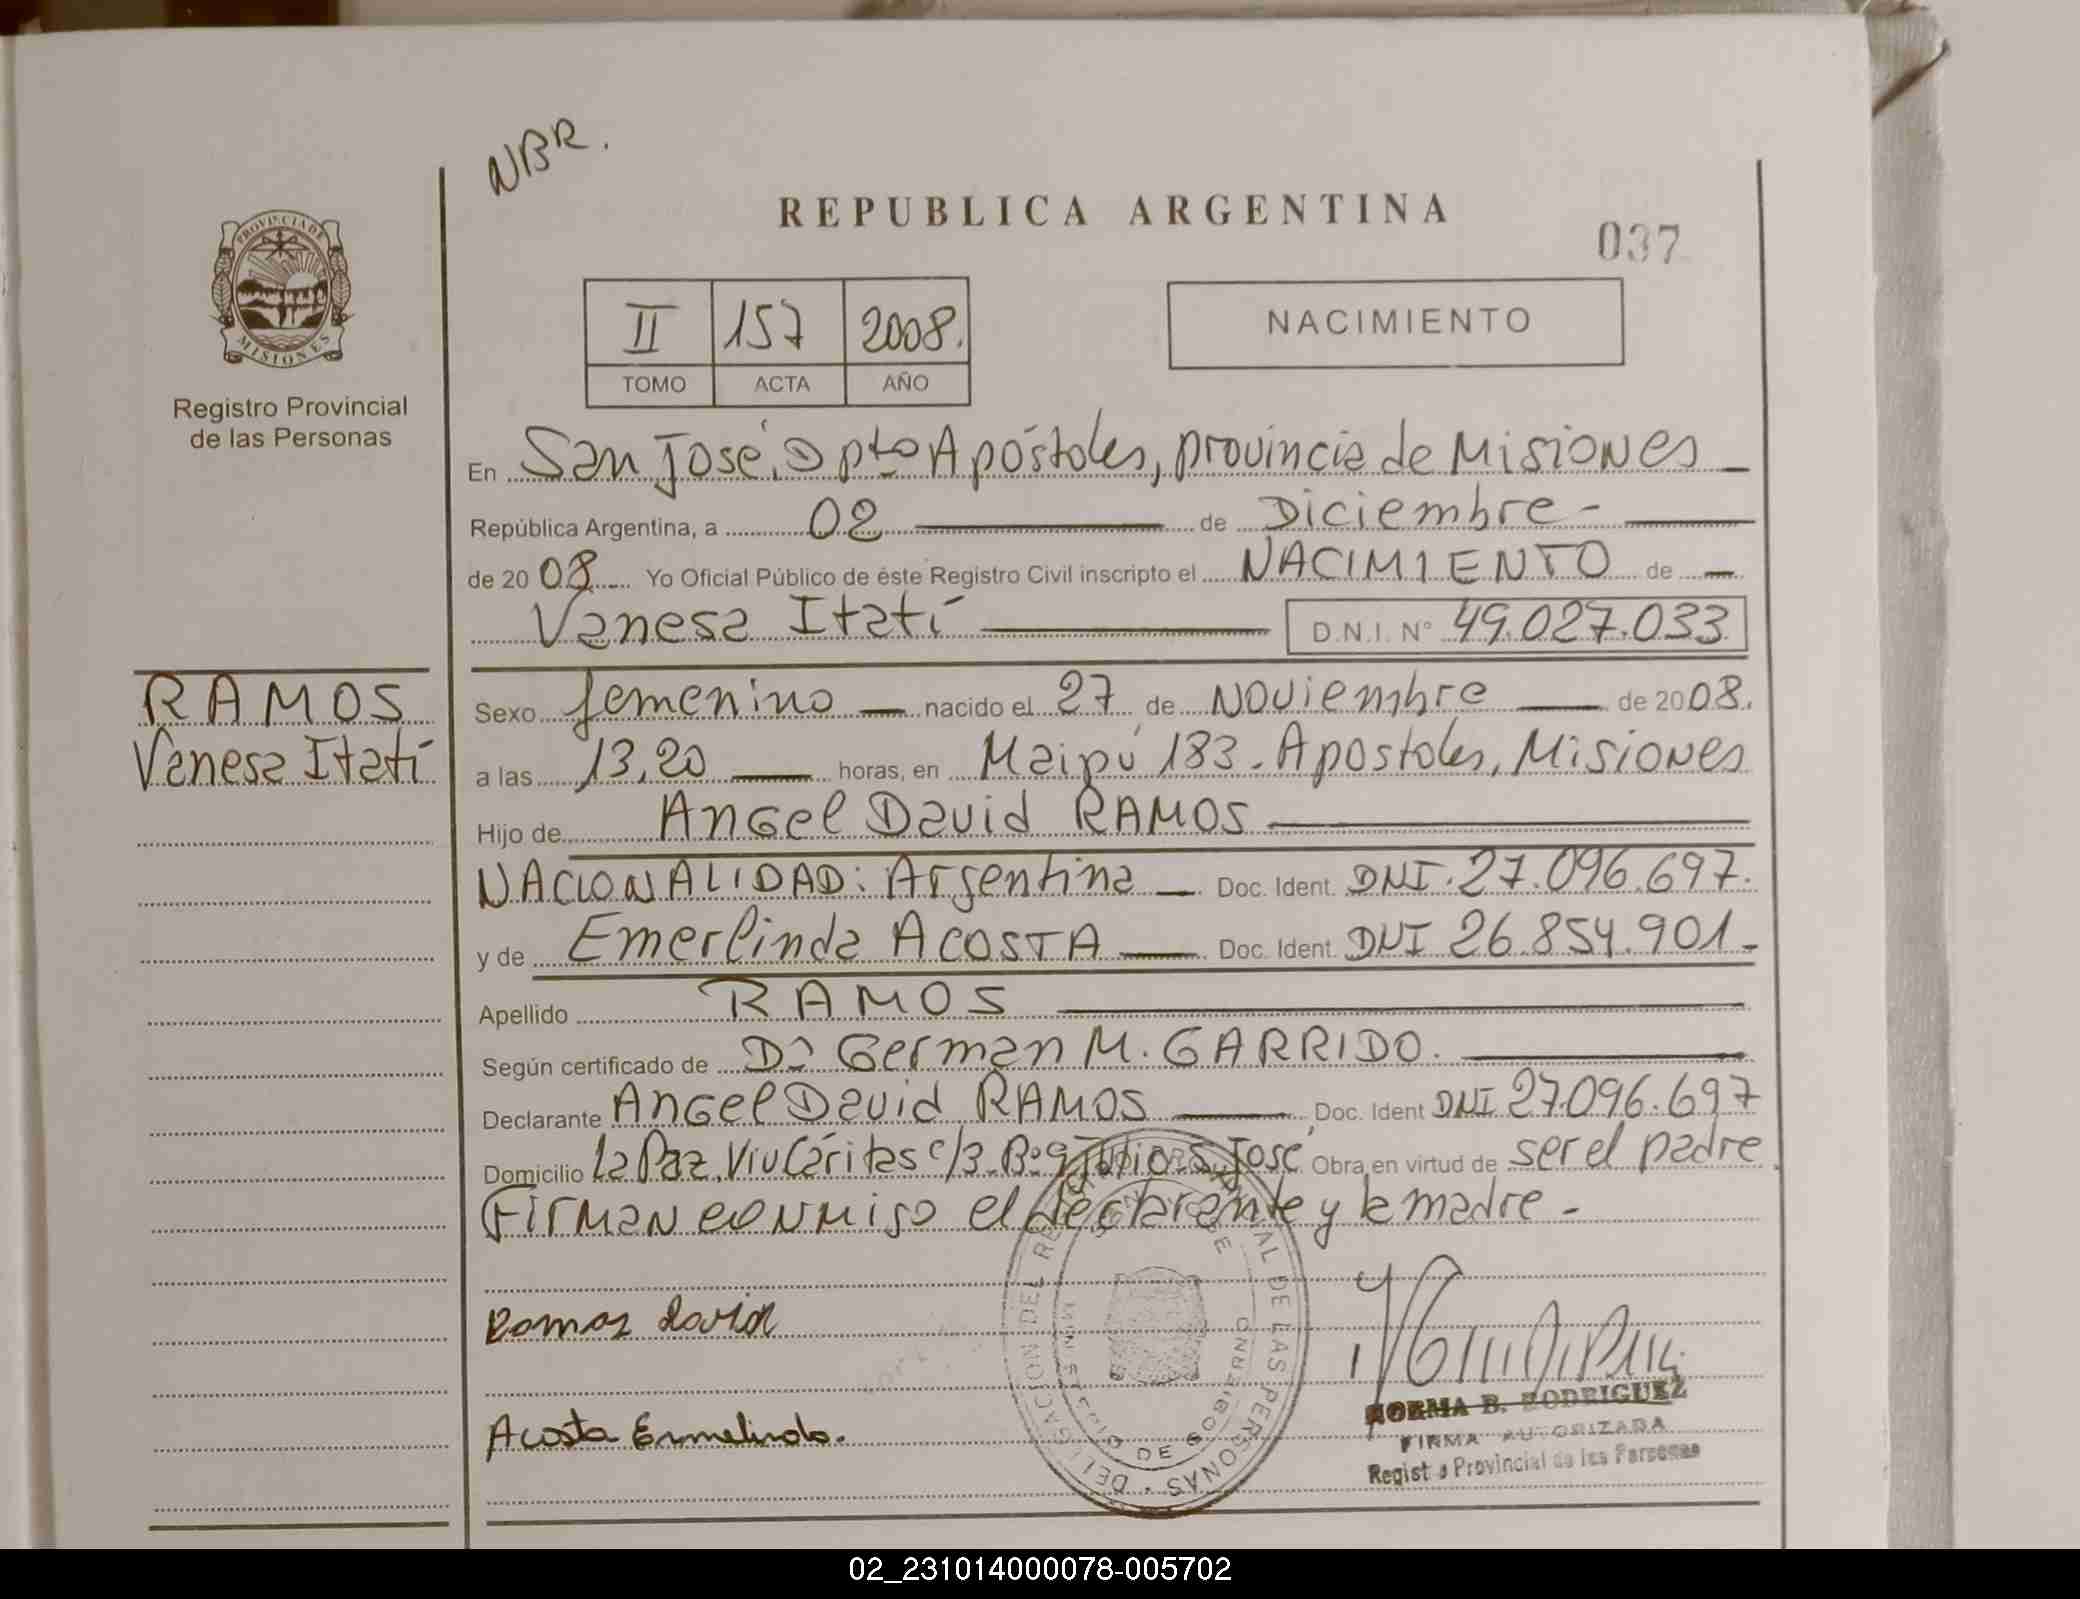 NBR.
REPUBLICA ARGENTINA
037
PROVINCIA DE
MISIONES
Registro Provincial
de las Personas
II 157 2008.
TOMO ACTA AÑO
NACIMIENTO
En San José, Dpto Apóstoles, provincia de Misiones
República Argentina, a 02 de Diciembre -
de 20 08 Yo Oficial Público de éste Registro Civil inscripto el NACIMIENTO de
Vanesa Itatí D.N.I. Nº 49.027.033
RAMOS
Vanesa Itatí
Sexo femenino nacido el 27 de Noviembre de 20 08.
a las 13,20 horas, en Maipú 183 - Apostoles, Misiones
Hijo de Angel David RAMOS
NACIONALIDAD: Argentina Doc. Ident. DNI. 27.096.697.
y de Emerlinda ACOSTA Doc. Ident. DNI 26.854.901-
Apellido RAMOS
Según certificado de German M. GARRIDO.
Declarante Angel David RAMOS Doc. Ident DNI 27096.697
Domicilio La Paz, Viv Cáritas c/3 - Bº 9 Julio - S. José Obra en virtud de ser el padre
Firman conmigo el declarante y la madre -
Ramos David
Acosta Ermelinda.
DELEGACION DEL REGISTRO PROVINCIAL DE LAS PERSONAS
MINISTERIO DE GOBIERNO
NORMA B. RODRIGUEZ
FIRMA AUTORIZADA
Regist o Provincial de las Personas
02_231014000078-005702